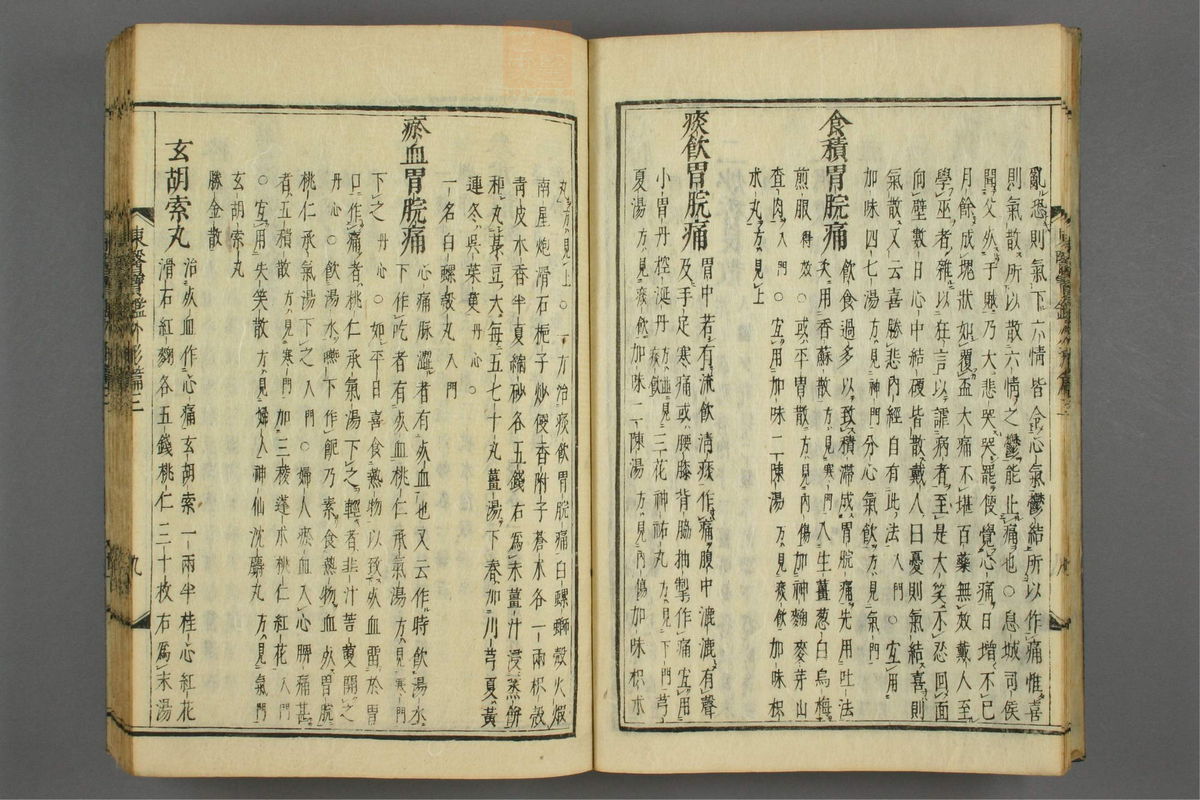 亂恐則氣下六情皆令心氣鬱結所以作痛惟喜
則氣散所以散六情之鬱能止痛也○息城司侯
聞父死于賊乃大悲哭哭罷便覺心痛日增不已
月餘成塊狀如覆盃大痛不堪百藥無效戴人至
學巫者雜以狂言以謔病者至是大笑不忍回面
向壁數日心中結硬皆散戴人曰憂則氣結喜則
氣散又云喜勝悲內經自有此法入門○宜用
加味四七湯方見神門分心氣飮方見氣門
食積胃脘痛飮食過多以致積滯成胃脘痛先用吐法
次用香蘇散方見寒門入生薑葱白烏梅
煎服得效○或平胃散方見內傷加神麴麥芽山
査肉入門○宜用加味二陳湯方見痰飮加味枳
朮丸方見上
痰飮胃脘痛胃中若有流飮淸痰作痛腹中漉漉有聲
及手足寒痛或腰膝背脇抽掣作痛宜用
小胃丹控涎丹方並見痰飮三花神祐丸方見下門芎
夏湯方見痰飮加味二陳湯方見內傷加味枳朮
丸方見上○一方治痰飮胃脘痛白螺螄殼火煅
南星炮滑石梔子炒便香附子蒼朮各一兩枳殼
靑皮木香半夏縮砂各五錢右爲末薑汁浸蒸餠
和丸菉豆大每五七十丸薑湯下春加川芎夏黃
連冬吳茱萸丹心○
一名白螺殼丸入門
瘀血胃脘痛心痛脉澀者有死血也又云作時飮湯水
下作吃者有死血桃仁承氣湯方見寒門
下之丹心○如平日喜食熱物以致死血留於胃
口作痛者桃仁承氣湯下之輕者非汁苦薁開之
丹心○飮湯水嚥下作呃乃素食熱物血死胃脘
桃仁承氣湯下之入門○婦人瘀血入心脾痛甚
者五積散方見寒門加三稜蓬朮桃仁紅花入門
○宜用失笑散方見婦人神仙沈麝丸方見氣門
玄胡索丸
勝金散
玄胡索丸治死血作心痛玄胡索一兩半桂心紅花
滑石紅麴各五錢桃仁三十枚右爲末湯
東醫寶鑑外形篇三
九